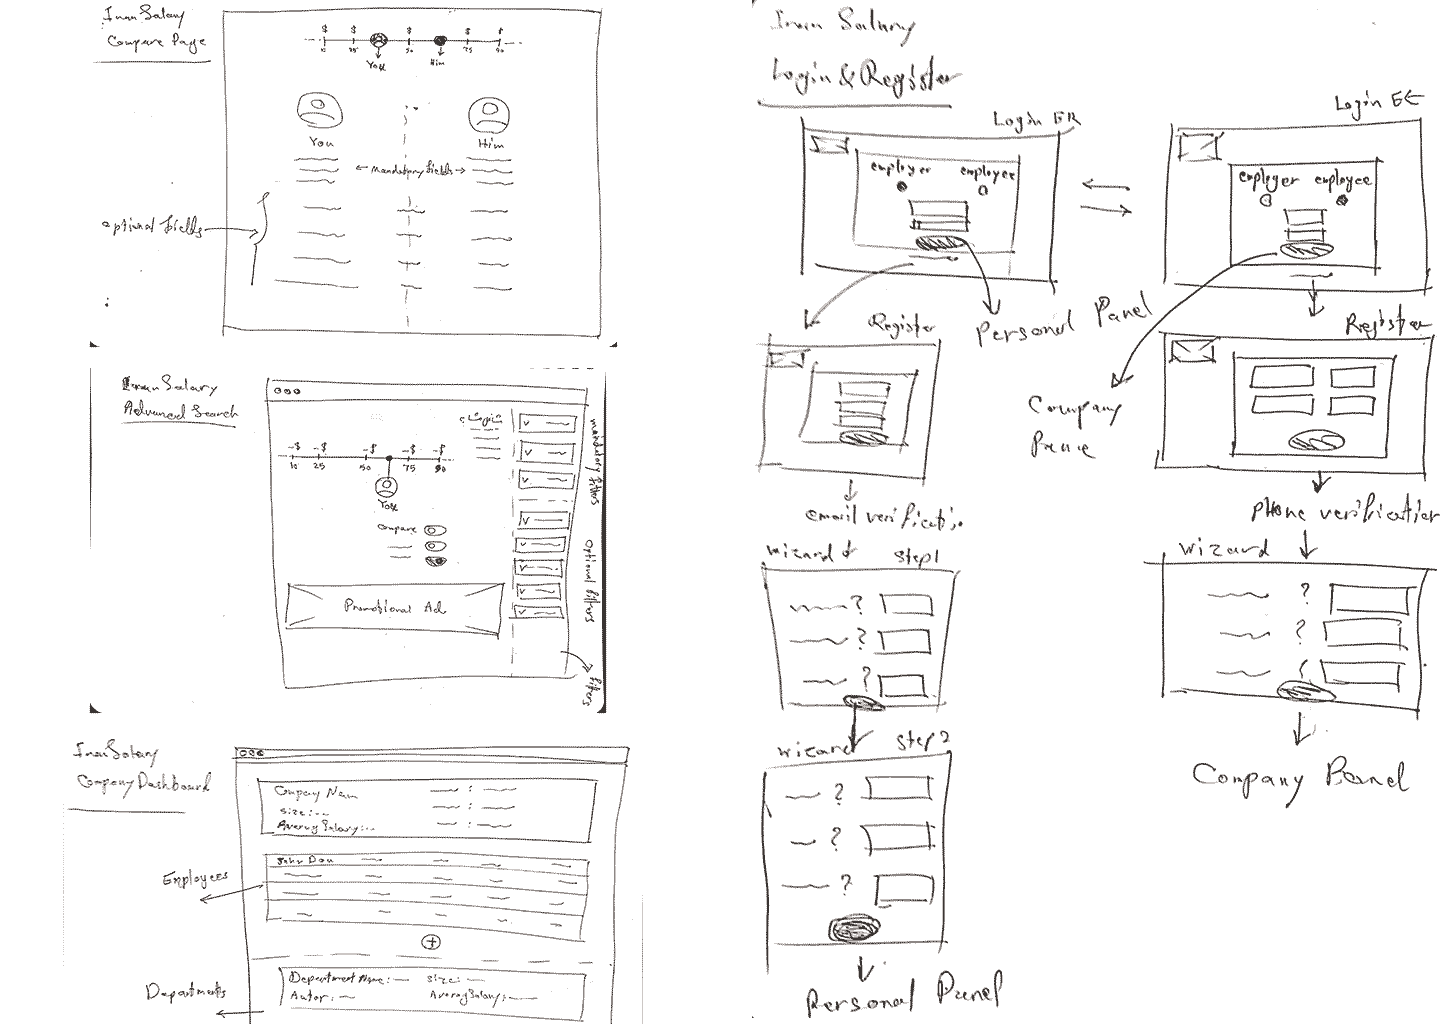 Iran Salary
Compare Page
$ $ $ $ $
10 25 50 75 90
You
Him
You
Him
← mandatory fields →
optional fields
Iran Salary
Advanced Search
-$ -$ -$ -$ -$
10 25 50 75 90
You
Compare
Promotional Ad
mandatory filters
optional filters
filters
Iran Salary
Company Dashboard
Company Nam
size:--
Averag Salary:--
John Dou
Employees
+
Department Name:— size:—
Autor:— Averag Salary:—
Departments
Iran Salary
Login & Register
Login ER
employer employee
Login EE
employer employee
Personal Panel
Register
Register
Company
email verificatio
phone verification
wizard step1
? 
?
?
wizard
?
?
?
wizard step2
?
?
?
Company Panel
Personal Panel